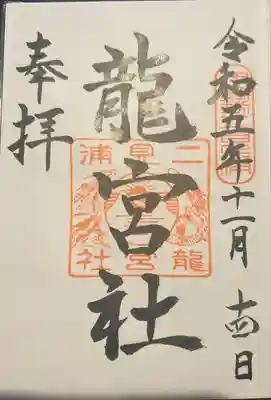 令和五年十一月十四日
龍宮社
二見浦
龍宮社
奉拝